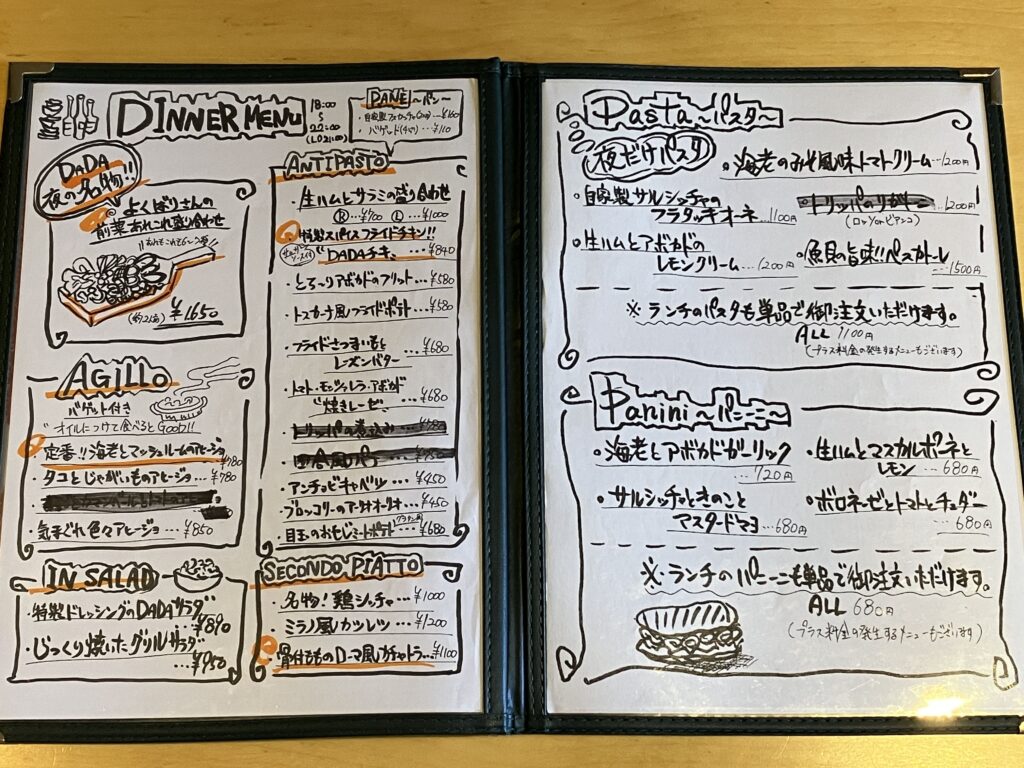 DINNER MENU
18:00
22:00
PANE ~パン~
¥160
バゲット ...¥110
DADA
夜の名物!!
よくばりさんの
前菜あれこれ盛り合わせ
¥1650
ANTIPASTO
・生ハムとサラミの盛り合わせ
Ⓡ...¥700 Ⓛ...¥1000
特製スパイスフライドチキン!!
"DADAチキ" ...¥840
・とろ~りアボカドのフリット...¥580
・トスカーナ風フライドポテト...¥580
・フライドさつまいもと
レーズンバター ...¥680
・トマト・モッツァレラ・アボカド
"焼きレーゼ" ...¥680
・トリッパの煮込み...¥780
・アンチョビキャベツ ...¥450
・ブロッコリーのアーリオオーリオ...¥450
・目玉のおやじミートポテトグラタン風...¥680
AGILLO
バゲット付き
オイルにつけて食べるとGOOD!!
定番!!海老とマッシュルームのアヒージョ
...¥780
・タコとじゃがいものアヒージョ...¥780
・気まぐれ色々アヒージョ...¥850
IN SALAD
・特製ドレッシングのDADAサラダ
...¥890
・じっくり焼いたグリルサラダ
...¥950
SECONDO PIATTO
・名物!鶏シッチャ ...¥1000
・ミラノ風カツレツ ...¥1200
・骨付もものローマ風カチャトラ...¥1100
Pasta~パスタ~
夜だけパスタ
・海老のみそ風味トマトクリーム...1200円
・自家製サルシッチャの
フラタッキオーネ 1100円
・トリッパのリガトーニ...1200円
(ロッソorビアンコ)
・生ハムとアボカドの
レモンクリーム...1200円
・魚貝の旨味!!ペスカトーレ
...1500円
※ランチのパスタも単品で御注文いただけます。
ALL 1100円
(プラス料金の発生するメニューもございます)
Panini~パニーニ~
・海老とアボカドガーリック
...720円
・生ハムとマスカルポーネと
レモン...680円
・サルシッチャときのこと
マスタードマヨ...680円
・ボロネーゼとトマトとチェダー
...680円
※ランチのパニーニも単品で御注文いただけます。
ALL 680円
(プラス料金の発生するメニューもございます)